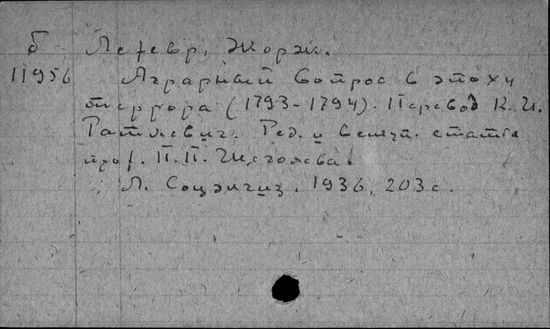 Б Лефевр, Жорж.
11956 Аграрный вопрос в эпоху
террора (1793-1794). Перевод К.И.
Раткевич. Ред. и вступ. статья
проф. П.П. Щеголева.
Л. Соцэкгиз, 1936, 203 с.